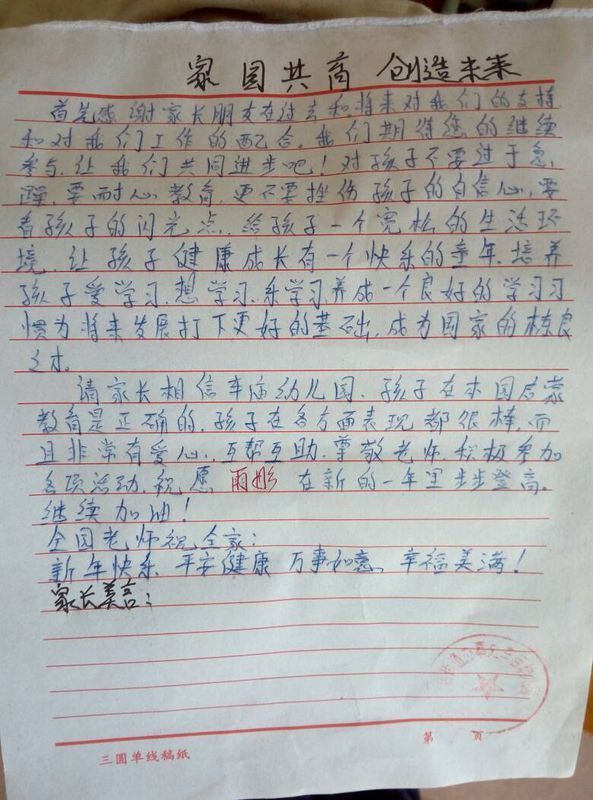 家园共育 创造未来
首先感谢家长朋友在过去和将来对我们的支持
和对我们工作的配合。我们期待您的继续
参与,让我们共同进步吧!对孩子不要过于急
躁,要耐心教育,更不要挫伤孩子的自信心,要
看孩子的闪光点,给孩子一个宽松的生活环
境,让孩子健康成长有一个快乐的童年,培养
孩子爱学习,想学习,乐学习,养成一个良好的学习习
惯为将来发展打下更好的基础,成为国家的栋良
之才。
请家长相信车庙幼儿园,孩子在本园启蒙
教育是正确的,孩子在各方面表现都很棒,而
且非常有爱心,互帮互助,尊敬老师,积极参加
各项活动,祝愿 雨彤 在新的一年里步步登高。
继续加油!
全园老师祝全家:
新年快乐 平安健康 万事如意 幸福美满!
家长美言:
三圆单线稿纸
第 页